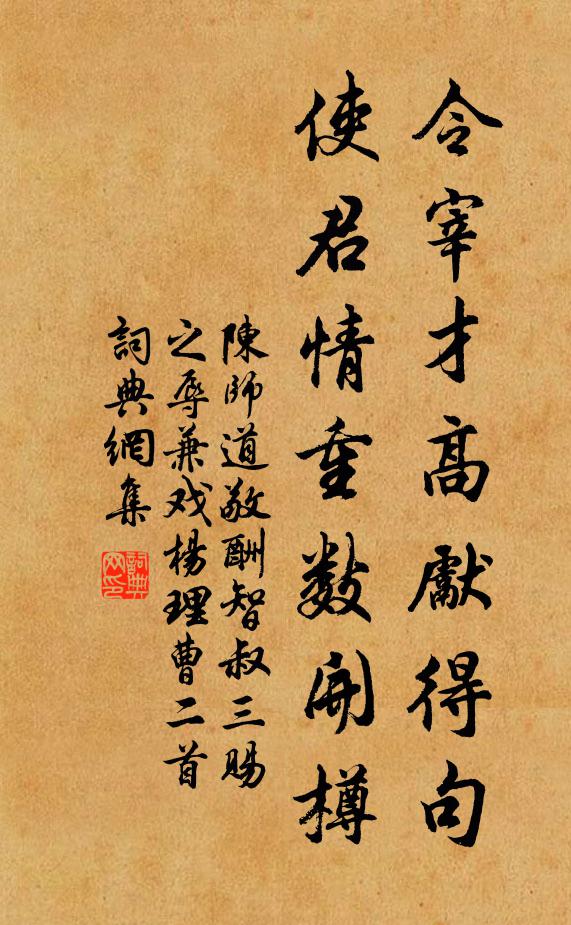 令宰才高獻得句
使君情重數開樽
陳師道敬酬智叔三賜
之辱兼戏楊理曹二首
詞典網集
詞典
网印